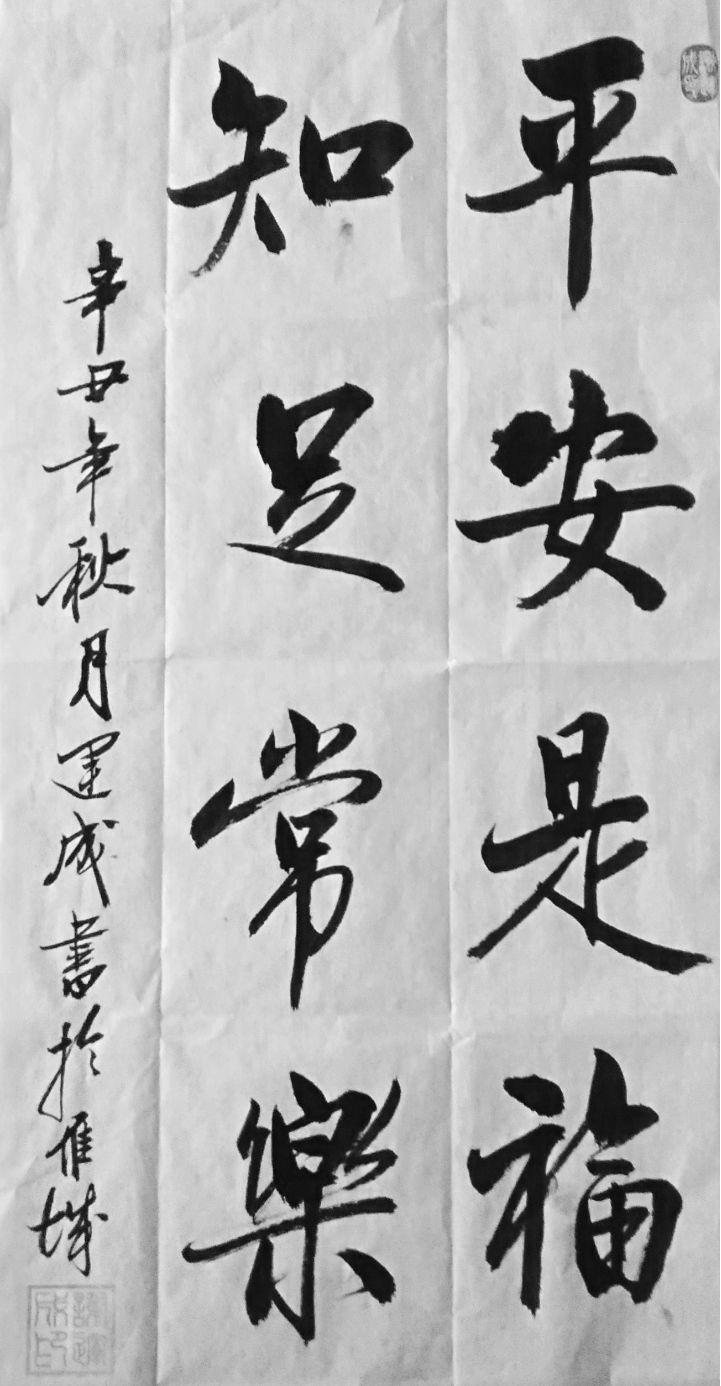 平安是福
知足常樂
辛丑年秋月運成書於雁城